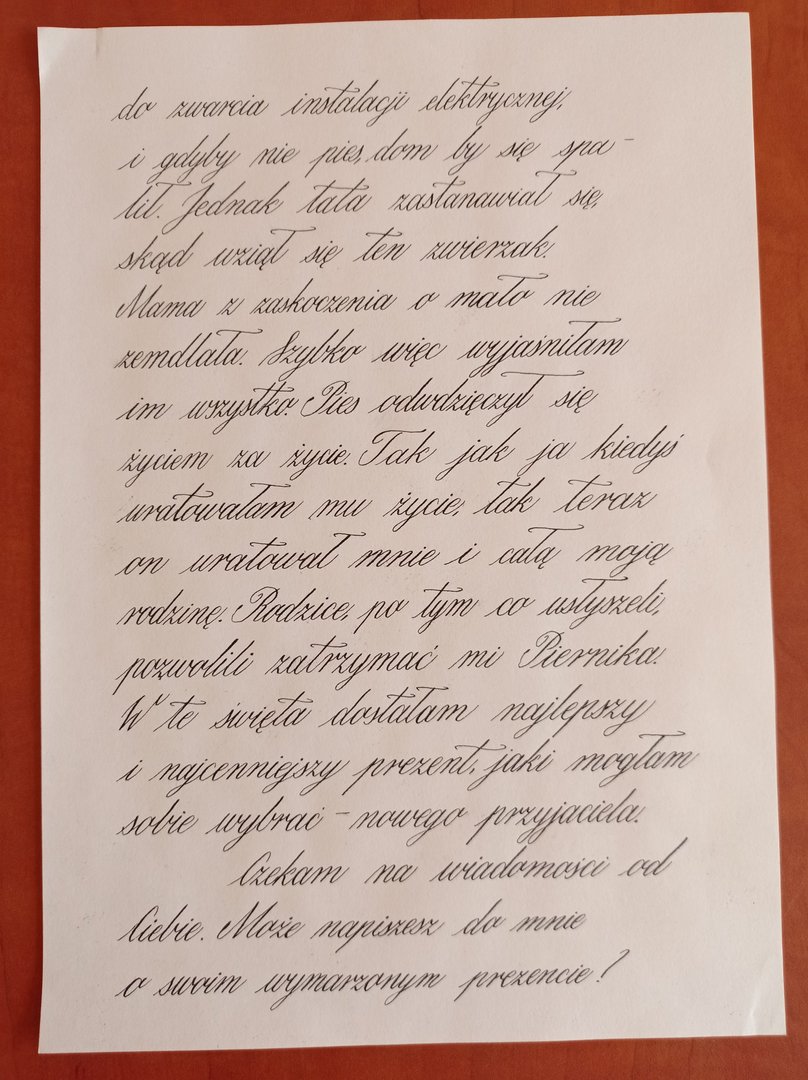 do zwarcia instalacji elektrycznej,
i gdyby nie pies, dom by się spa-
lił. Jednak tata zastanawiał się,
skąd wziął się ten zwierzak.
Mama z zaskoczenia o mało nie
zemdlała. Szybko więc wyjaśniłam
im wszystko. Pies odwdzięczył się
życiem za życie. Tak jak ja kiedyś
uratowałam mu życie, tak teraz
on uratował mnie i całą moją
rodzinę. Rodzice, po tym co usłyszeli,
pozwolili zatrzymać mi Piernika.
W te święta dostałam najlepszy
i najcenniejszy prezent, jaki mogłam
sobie wybrać - nowego przyjaciela.
Czekam na wiadomości od
Ciebie. Może napiszesz do mnie
o swoim wymarzonym prezencie?